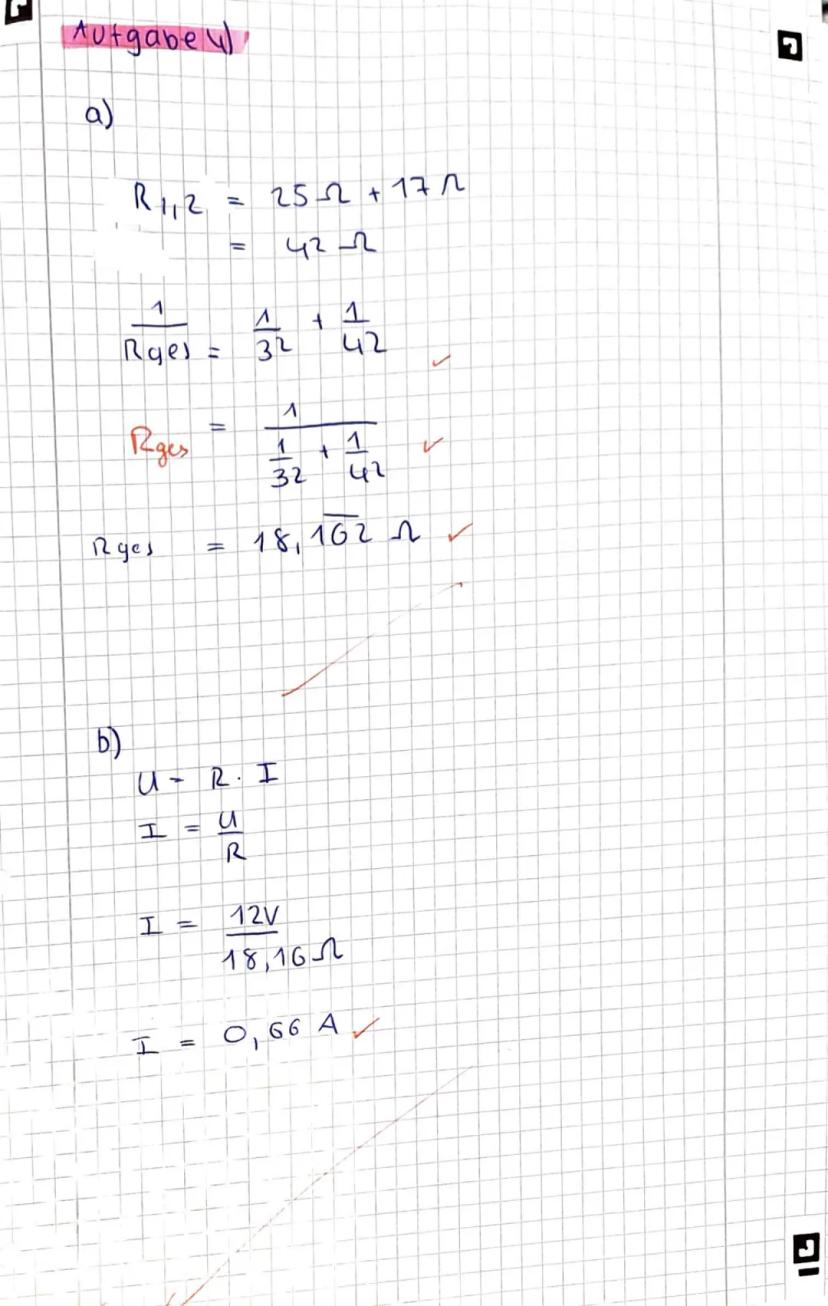 Aufgabe 4)
a)
R1,2 = 25 Ω + 17 Ω
= 42 Ω
1/Rges = 1/32 + 1/42 ✓
Rges = 1/(1/32 + 1/42) ✓
Rges = 18,1̅6̅2 Ω ✓
b)
U = R · I
I = U/R
I = 12V/18,16 Ω
I = 0,66 A ✓